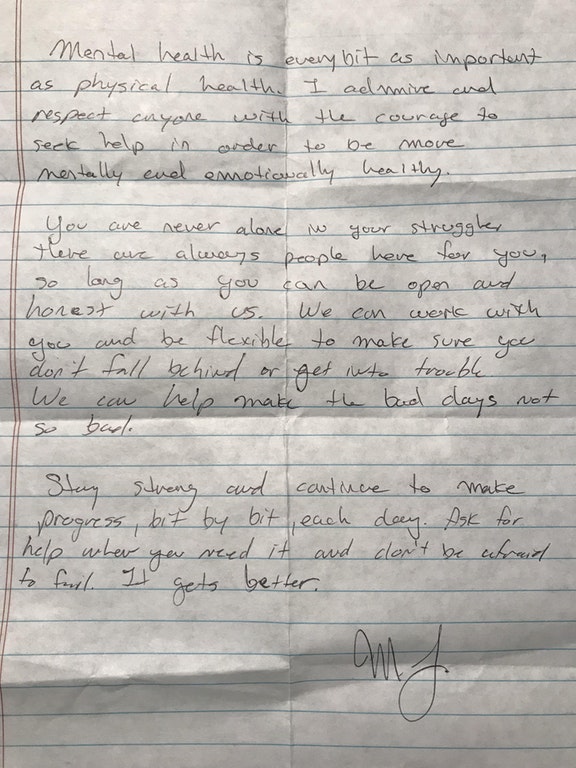 Mental health is every bit as important
as physical health. I admire and
respect anyone with the courage to
seek help in order to be more
mentally and emotionally healthy.
You are never alone in your struggle,
there are always people here for you,
so long as you can be open and
honest with us. We can work with
you and be flexible to make sure you
don't fall behind or get into trouble
We can help make the bad days not
so bad.
Stay strong and continue to make
progress, bit by bit, each day. Ask for
help when you need it and don't be afraid
to fail. It gets better.